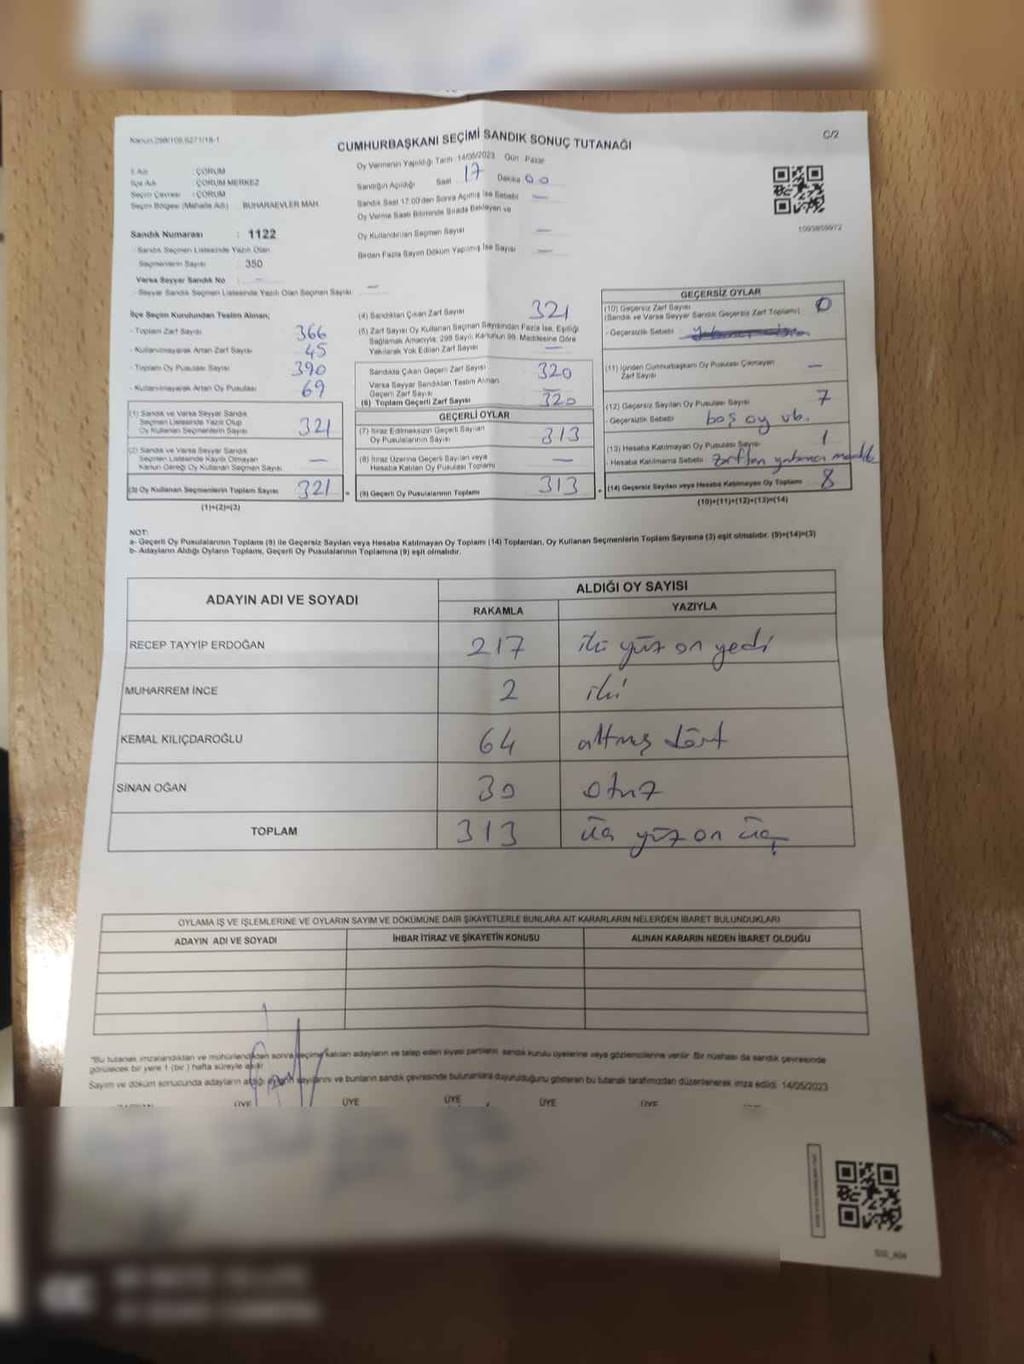 Kanun:298/109,6271/18-1
CUMHURBAŞKANI SEÇİMİ SANDIK SONUÇ TUTANAĞI
C/2
İl Adı : ÇORUM
İlçe Adı : ÇORUM MERKEZ
Seçim Çevresi : ÇORUM
Seçim Bölgesi (Mahalle Adı) BUHARAEVLER MAH.
Sandık Numarası : 1122
Sandık Seçmen Listesinde Yazılı Olan
Seçmenlerin Sayısı 350
Varsa Seyyar Sandık No —
- Seyyar Sandık Seçmen Listesinde Yazılı Olan Seçmen Sayısı: —
Oy Vermenin Yapıldığı Tarih 14/05/2023 Gün Pazar
Sandığın Açıldığı Saat 17 Dakika 00
Sandık Saat 17.00'den Sonra Açılmış İse Sebebi —
Oy Verme Saati Bitiminde Sırada Bekleyen ve
Oy Kullandırılan Seçmen Sayısı —
Birden Fazla Sayım Döküm Yapılmış İse Sayısı —
İlçe Seçim Kurulundan Teslim Alınan;
- Toplam Zarf Sayısı 366
- Kullanılmayarak Artan Zarf Sayısı 45
- Toplam Oy Pusulası Sayısı 390
- Kullanılmayarak Artan Oy Pusulası 69
(1) Sandık ve Varsa Seyyar Sandık
Seçmen Listesinde Yazılı Olup
Oy Kullanan Seçmenlerin Sayısı 321
(2) Sandık ve Varsa Seyyar Sandık
Seçmen Listesinde Kayıtlı Olmayan
Kanun Gereği Oy Kullanan Seçmen Sayısı —
(3) Oy Kullanan Seçmenlerin Toplam Sayısı 321 =
(1)+(2)=(3)
(4) Sandıktan Çıkan Zarf Sayısı 321
(5) Zarf Sayısı Oy Kullanan Seçmen Sayısından Fazla İse, Eşitliği
Sağlamak Amacıyla; 298 Sayılı Kanunun 98. Maddesine Göre
Yakılarak Yok Edilen Zarf Sayısı —
Sandıkta Çıkan Geçerli Zarf Sayısı 320
Varsa Seyyar Sandıktan Teslim Alınan
Geçerli Zarf Sayısı —
(6) Toplam Geçerli Zarf Sayısı 320
GEÇERLİ OYLAR
(7) İtiraz Edilmeksizin Geçerli Sayılan
Oy Pusulalarının Sayısı 313
(8) İtiraz Üzerine Geçerli Sayılan veya
Hesaba Katılan Oy Pusulası Toplamı —
(9) Geçerli Oy Pusulalarının Toplamı 313 +
1095859972
GEÇERSİZ OYLAR
(10) Geçersiz Zarf Sayısı 0
(Sandık ve Varsa Seyyar Sandık Geçersiz Zarf Toplamı)
- Geçersizlik Sebebi :
(11) İçinden Cumhurbaşkanı Oy Pusulası Çıkmayan
Zarf Sayısı —
(12) Geçersiz Sayılan Oy Pusulası Sayısı 7
- Geçersizlik Sebebi : boş oy vb.
(13) Hesaba Katılmayan Oy Pusulası Sayısı 1
- Hesaba Katılmama Sebebi : zarftan yabancı madde
(14) Geçersiz Sayılan veya Hesaba Katılmayan Oy Toplamı 8
(10)+(11)+(12)+(13)=(14)
NOT:
a- Geçerli Oy Pusulalarının Toplamı (9) ile Geçersiz Sayılan veya Hesaba Katılmayan Oy Toplamı (14) Toplamları, Oy Kullanan Seçmenlerin Toplam Sayısına (3) eşit olmalıdır. (9)+(14)=(3)
b- Adayların Aldığı Oyların Toplamı, Geçerli Oy Pusulalarının Toplamına (9) eşit olmalıdır.
ADAYIN ADI VE SOYADI
ALDIĞI OY SAYISI
RAKAMLA YAZIYLA
RECEP TAYYİP ERDOĞAN 217 iki yüz on yedi
MUHARREM İNCE 2 iki
KEMAL KILIÇDAROĞLU 64 altmış dört
SİNAN OĞAN 30 otuz
TOPLAM 313 üç yüz on üç
OYLAMA İŞ VE İŞLEMLERİNE VE OYLARIN SAYIM VE DÖKÜMÜNE DAİR ŞİKAYETLERLE BUNLARA AİT KARARLARIN NELERDEN İBARET BULUNDUKLARI
ADAYIN ADI VE SOYADI İHBAR İTİRAZ VE ŞİKAYETİN KONUSU ALINAN KARARIN NEDEN İBARET OLDUĞU
"Bu tutanak imzalandıktan ve mühürlendikten sonra seçime katılan adayların ve talep eden siyasi partilerin sandık kurulu üyelerine veya gözlemcilerine verilir. Bir nüshası da sandık çevresinde
görülecek bir yere 1 (bir) hafta süreyle asılır.
Sayım ve döküm sonucunda adayların aldığı oyların sayılarını ve bunların sandık çevresinde bulunanlara duyurulduğunu gösteren bu tutanak tarafımızdan düzenlenerek imza edildi. 14/05/2023
ÜYE ÜYE ÜYE ÜYE ÜYE